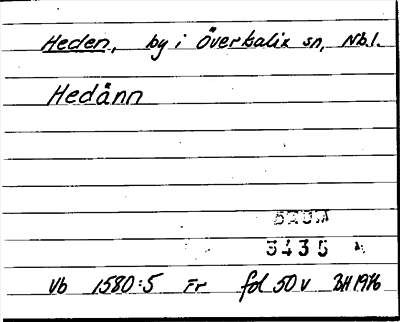 Heden, by i Överkalix sn, Nb.l.
Hedänn
5435
Vb 1580:5 Fr fol 50 v BH 1976